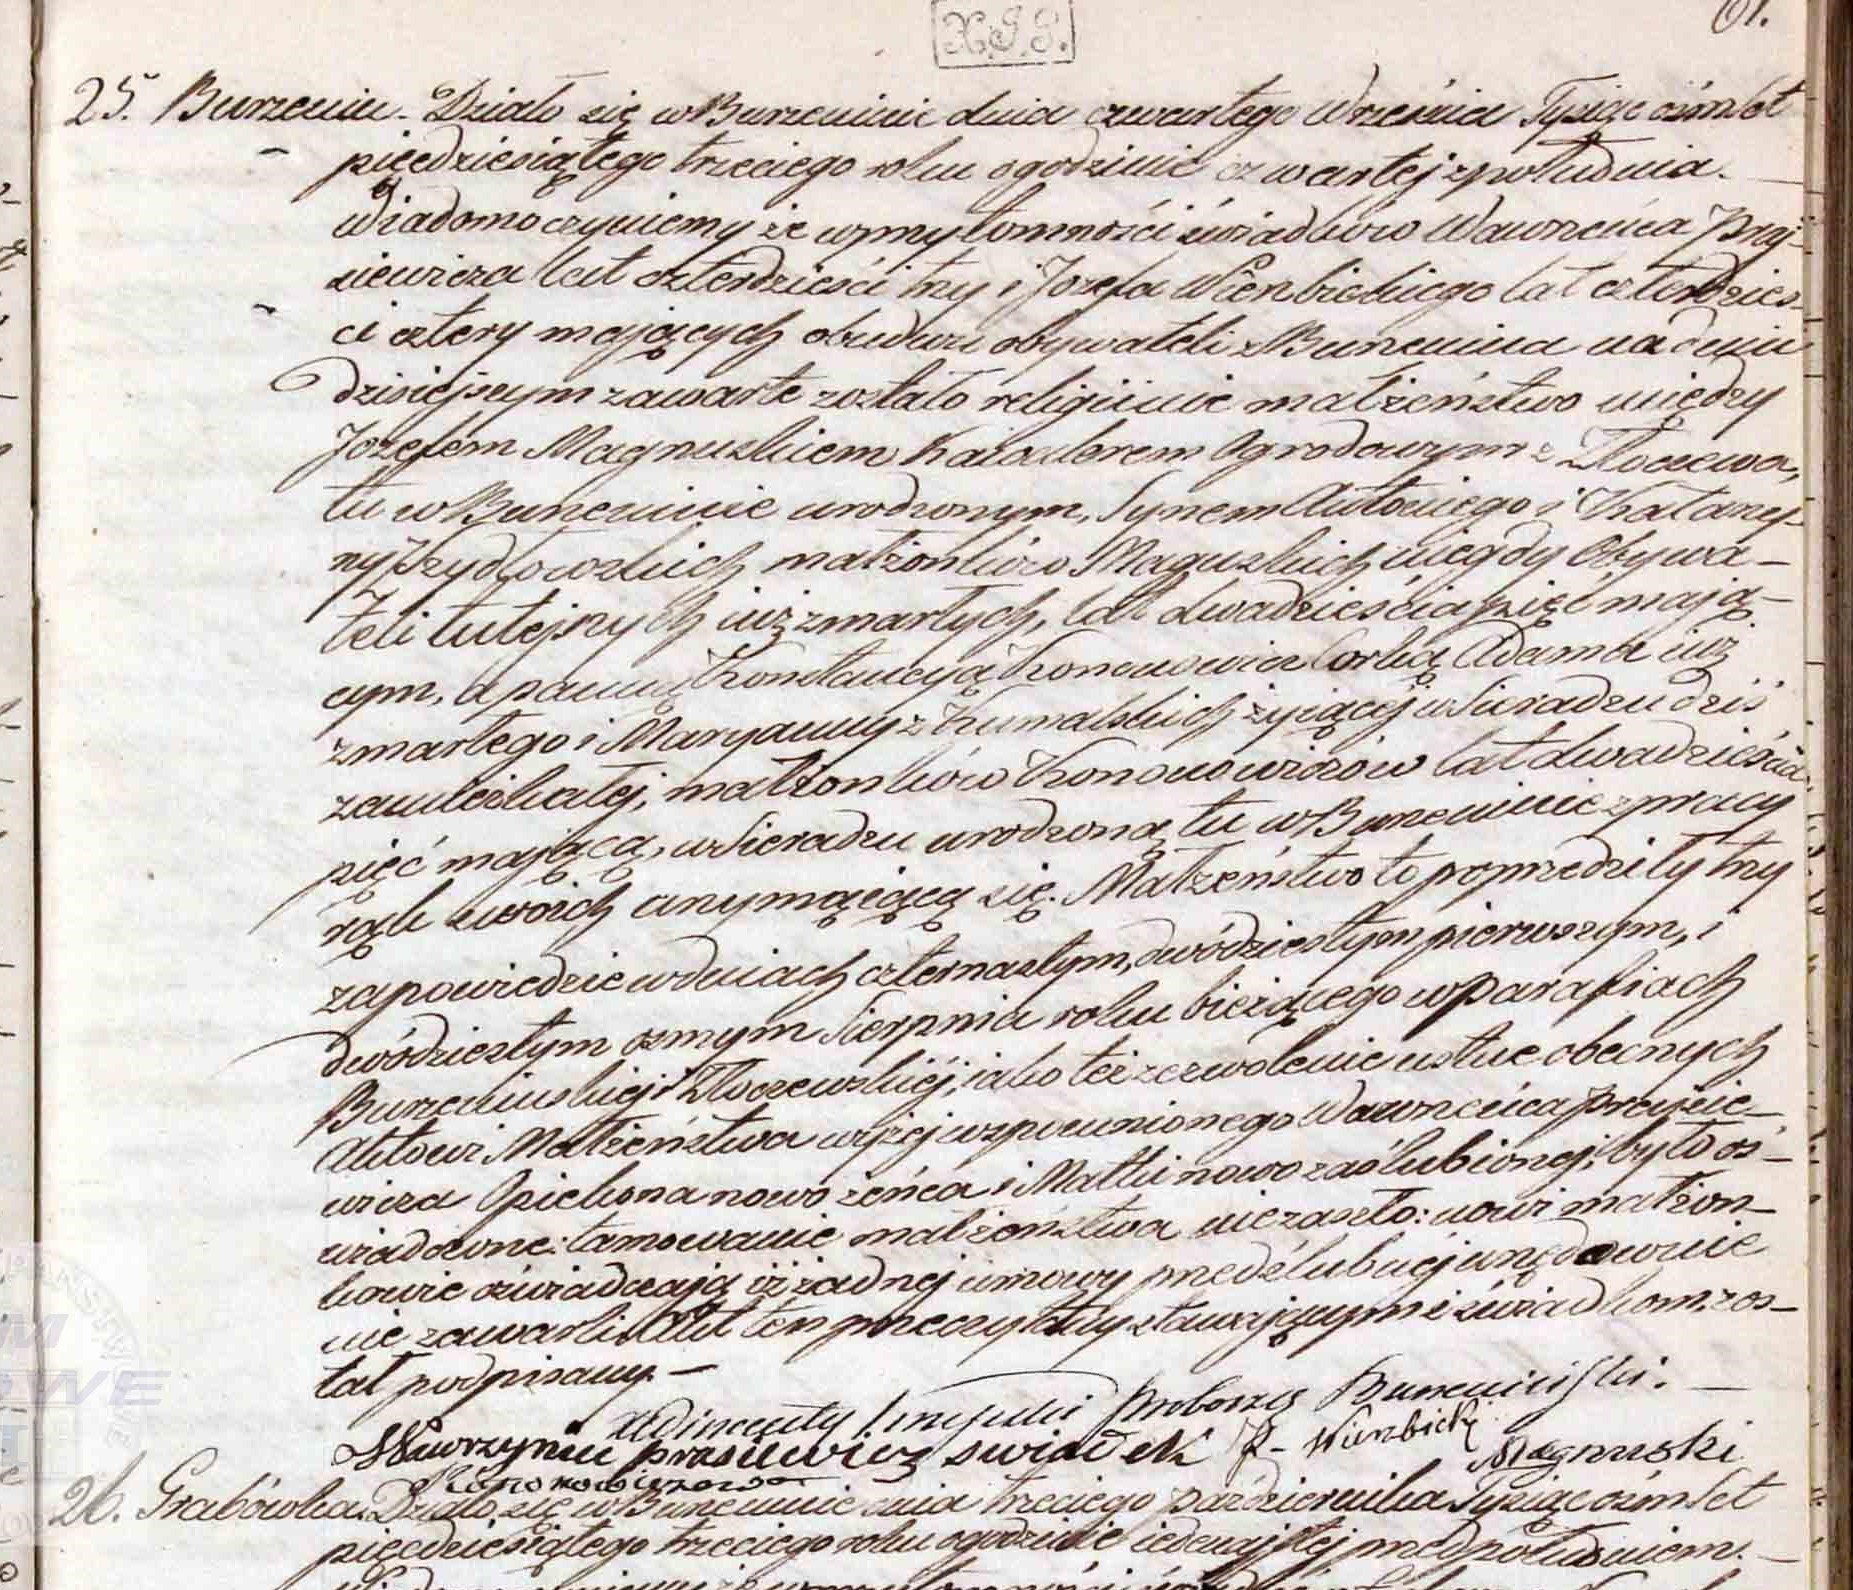 X.I.I.
61.
25. Burzenin. Działo się w Burzeninie dnia czwartego Września Tysiąc ośmset
pięćdziesiątego trzeciego roku o godzinie czwartej z południa.
Wiadomo czyniemy że w przytomności świadków Wawrzeńca Praj-
siewicza lat czterdzieści trzy i Jozefa Wierzbickiego lat czterdzieś-
ci cztery mających obudwu obywateli z Burzenina na dniu
dzisiejszym zawarte zostało religijnie małżeństwo między
Jozefem Magnuskiem Kawalerem Ogrodowym z Złoczewa,
tu w Burzeninie urodzonym, Synem Antoniego i Katarzy-
ny Szydłowskich małżonków Magnuskich niegdy Obywa-
teli tutejszych już zmarłych, lat dwadzieścia pięć mają-
cym, a panną Konstancyą Kononowicz Corką Adama już
zmarłego i Maryanny z Kumalskich żyjącej w Sieradzu dziś
zamieszkałej, małżonków Kononowiczów lat dwadzieścia
pięć mającą, w Sieradzu urodzoną tu w Burzeninie z pracy
rąk swoich utrzymąjącą się. Małżeństwo to poprzedziły trzy
zapowiedzie w dniach czternastym, dwódziestym pierwszym, i
dwódziestym osmym Sierpnia roku bieżącego w Parafiach
Burzeninskiej i Złoczewskiéj, jako też zezwolenie ustne obecnych
Aktowi Małżeństwa wyżej wspomnionego Wawrzeńca Prajsie-
wicza Opiekona nowożeńca i Matki nowo zaślubionej, było oś-
wiadczone: tamowanie małżeństwa niezaszło: nowi małżon-
kowie oświadczają iż żadnej umowy przedślubnej urzędownie
nie zawarli. Akt ten przeczytany stawającym i świadkom, zos-
tał podpisany. —
X Wincenty Proboszcz Burzeniński. —
Wawrzyniec Prasilewicz swiadek J. Wierzbicki Magnuski
Kononowiczowa
26. Grabówka. Działo się w Burzeninie dnia trzeciego października Tysiąc ośmset
pięćdziesiątego trzeciego roku o godzinie jedenastej przed południem. —